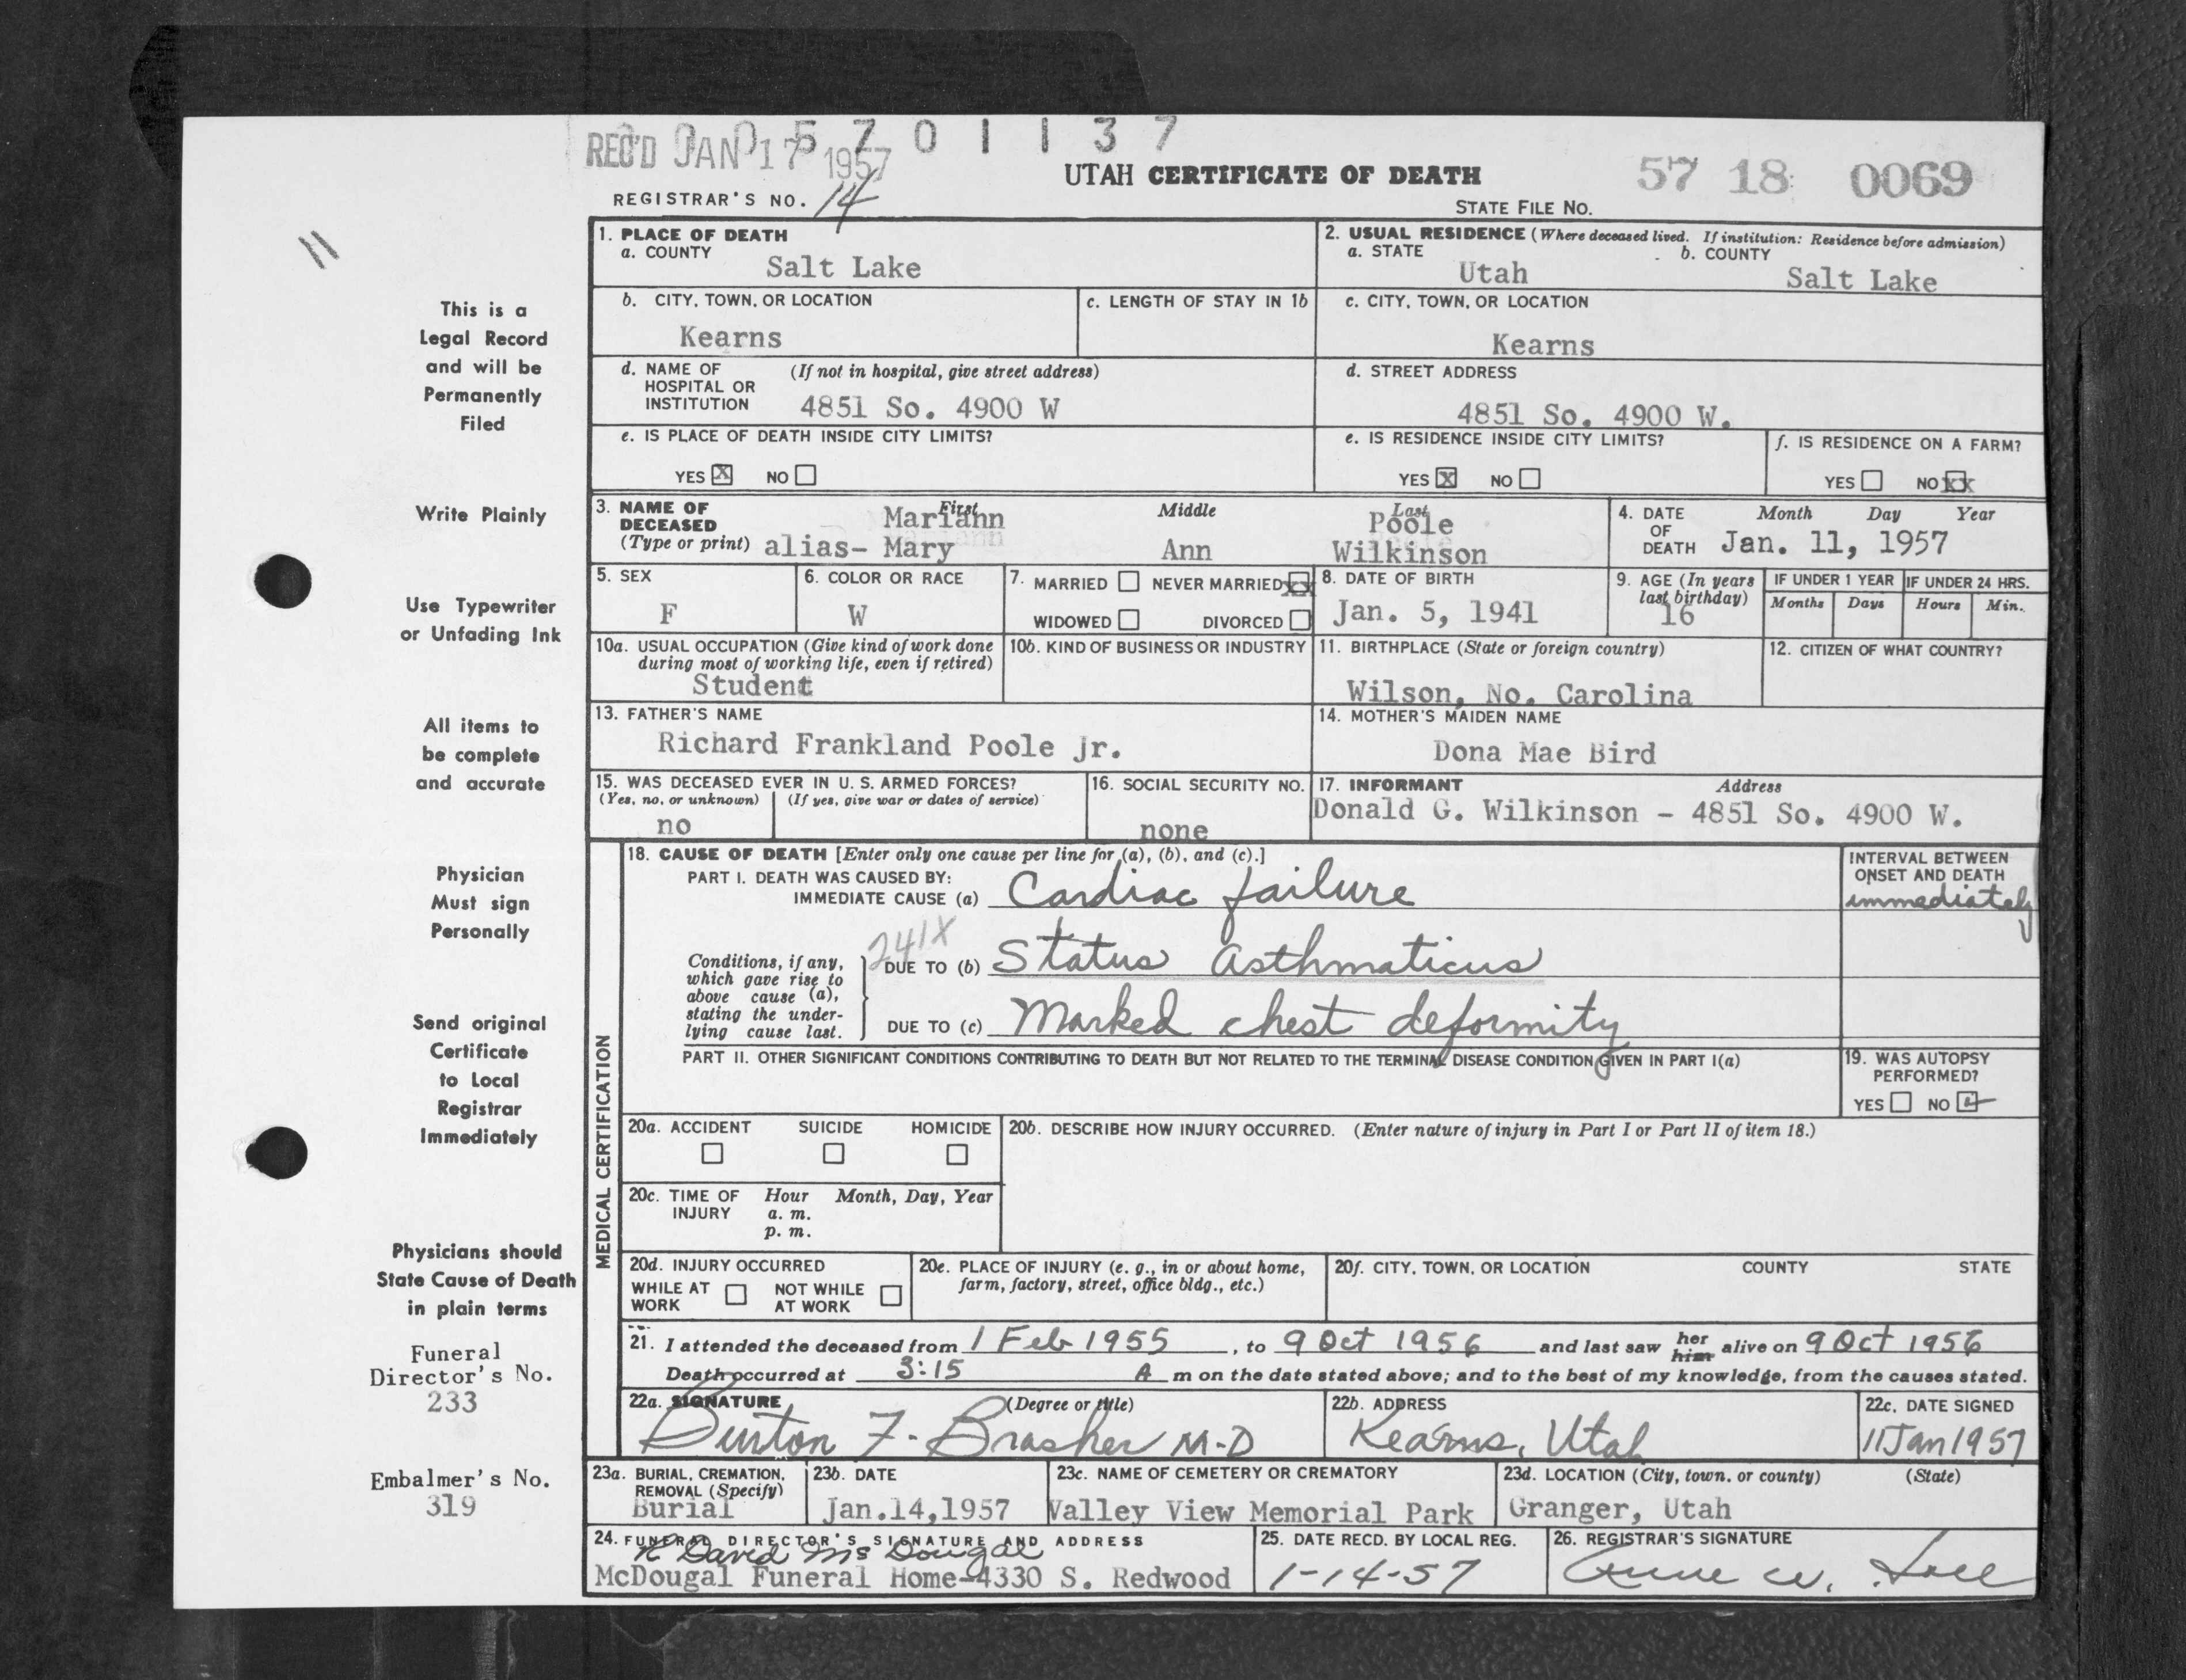 REC'D JAN 17 1957
0 0 5 7 0 1 1 3 7
UTAH CERTIFICATE OF DEATH
57 18 0069
REGISTRAR'S NO. 14
STATE FILE NO.
11
This is a
Legal Record
and will be
Permanently
Filed
Write Plainly
Use Typewriter
or Unfading Ink
All items to
be complete
and accurate
Physician
Must sign
Personally
Send original
Certificate
to Local
Registrar
Immediately
Physicians should
State Cause of Death
in plain terms
Funeral
Director's No.
233
Embalmer's No.
319
1. PLACE OF DEATH
a. COUNTY
Salt Lake
2. USUAL RESIDENCE (Where deceased lived. If institution: Residence before admission)
a. STATE b. COUNTY
Utah Salt Lake
b. CITY, TOWN, OR LOCATION c. LENGTH OF STAY IN 1b
Kearns
c. CITY, TOWN, OR LOCATION
Kearns
d. NAME OF (If not in hospital, give street address)
HOSPITAL OR
INSTITUTION 4851 So. 4900 W
d. STREET ADDRESS
4851 So. 4900 W.
e. IS PLACE OF DEATH INSIDE CITY LIMITS?
YES X NO
e. IS RESIDENCE INSIDE CITY LIMITS?
YES X NO
f. IS RESIDENCE ON A FARM?
YES NO XX
3. NAME OF First Middle Last
DECEASED Mariann Poole
(Type or print) alias- Mary Ann Wilkinson
4. DATE Month Day Year
OF
DEATH Jan. 11, 1957
5. SEX
F
6. COLOR OR RACE
W
7. MARRIED NEVER MARRIED XX
WIDOWED DIVORCED
8. DATE OF BIRTH
Jan. 5, 1941
9. AGE (In years
last birthday)
16
IF UNDER 1 YEAR IF UNDER 24 HRS.
Months Days Hours Min.
10a. USUAL OCCUPATION (Give kind of work done
during most of working life, even if retired)
Student
10b. KIND OF BUSINESS OR INDUSTRY
11. BIRTHPLACE (State or foreign country)
Wilson, No. Carolina
12. CITIZEN OF WHAT COUNTRY?
13. FATHER'S NAME
Richard Frankland Poole Jr.
14. MOTHER'S MAIDEN NAME
Dona Mae Bird
15. WAS DECEASED EVER IN U. S. ARMED FORCES?
(Yes, no, or unknown) (If yes, give war or dates of service)
no
16. SOCIAL SECURITY NO.
none
17. INFORMANT Address
Donald G. Wilkinson - 4851 So. 4900 W.
MEDICAL CERTIFICATION
18. CAUSE OF DEATH [Enter only one cause per line for (a), (b), and (c).]
PART I. DEATH WAS CAUSED BY:
IMMEDIATE CAUSE (a) Cardiac failure
INTERVAL BETWEEN
ONSET AND DEATH
immediately
241X
Conditions, if any,
which gave rise to
above cause (a),
stating the under-
lying cause last.
DUE TO (b) Status Asthmaticus
DUE TO (c) Marked chest deformity
PART II. OTHER SIGNIFICANT CONDITIONS CONTRIBUTING TO DEATH BUT NOT RELATED TO THE TERMINAL DISEASE CONDITION GIVEN IN PART I(a)
19. WAS AUTOPSY
PERFORMED?
YES NO
20a. ACCIDENT SUICIDE HOMICIDE
20b. DESCRIBE HOW INJURY OCCURRED. (Enter nature of injury in Part I or Part II of item 18.)
20c. TIME OF Hour Month, Day, Year
INJURY a. m.
p. m.
20d. INJURY OCCURRED
WHILE AT NOT WHILE
WORK AT WORK
20e. PLACE OF INJURY (e. g., in or about home,
farm, factory, street, office bldg., etc.)
20f. CITY, TOWN, OR LOCATION COUNTY STATE
21. I attended the deceased from 1 Feb 1955, to 9 Oct 1956 and last saw her him alive on 9 Oct 1956
Death occurred at 3:15 A m on the date stated above; and to the best of my knowledge, from the causes stated.
22a. SIGNATURE (Degree or title)
Burton F. Brasher M-D
22b. ADDRESS
Kearns, Utah
22c. DATE SIGNED
11 Jan 1957
23a. BURIAL, CREMATION,
REMOVAL (Specify)
Burial
23b. DATE
Jan.14,1957
23c. NAME OF CEMETERY OR CREMATORY
Valley View Memorial Park
23d. LOCATION (City, town, or county) (State)
Granger, Utah
24. FUNERAL DIRECTOR'S SIGNATURE AND ADDRESS
R David McDougal
McDougal Funeral Home-4330 S. Redwood
25. DATE RECD. BY LOCAL REG.
1-14-57
26. REGISTRAR'S SIGNATURE
W.